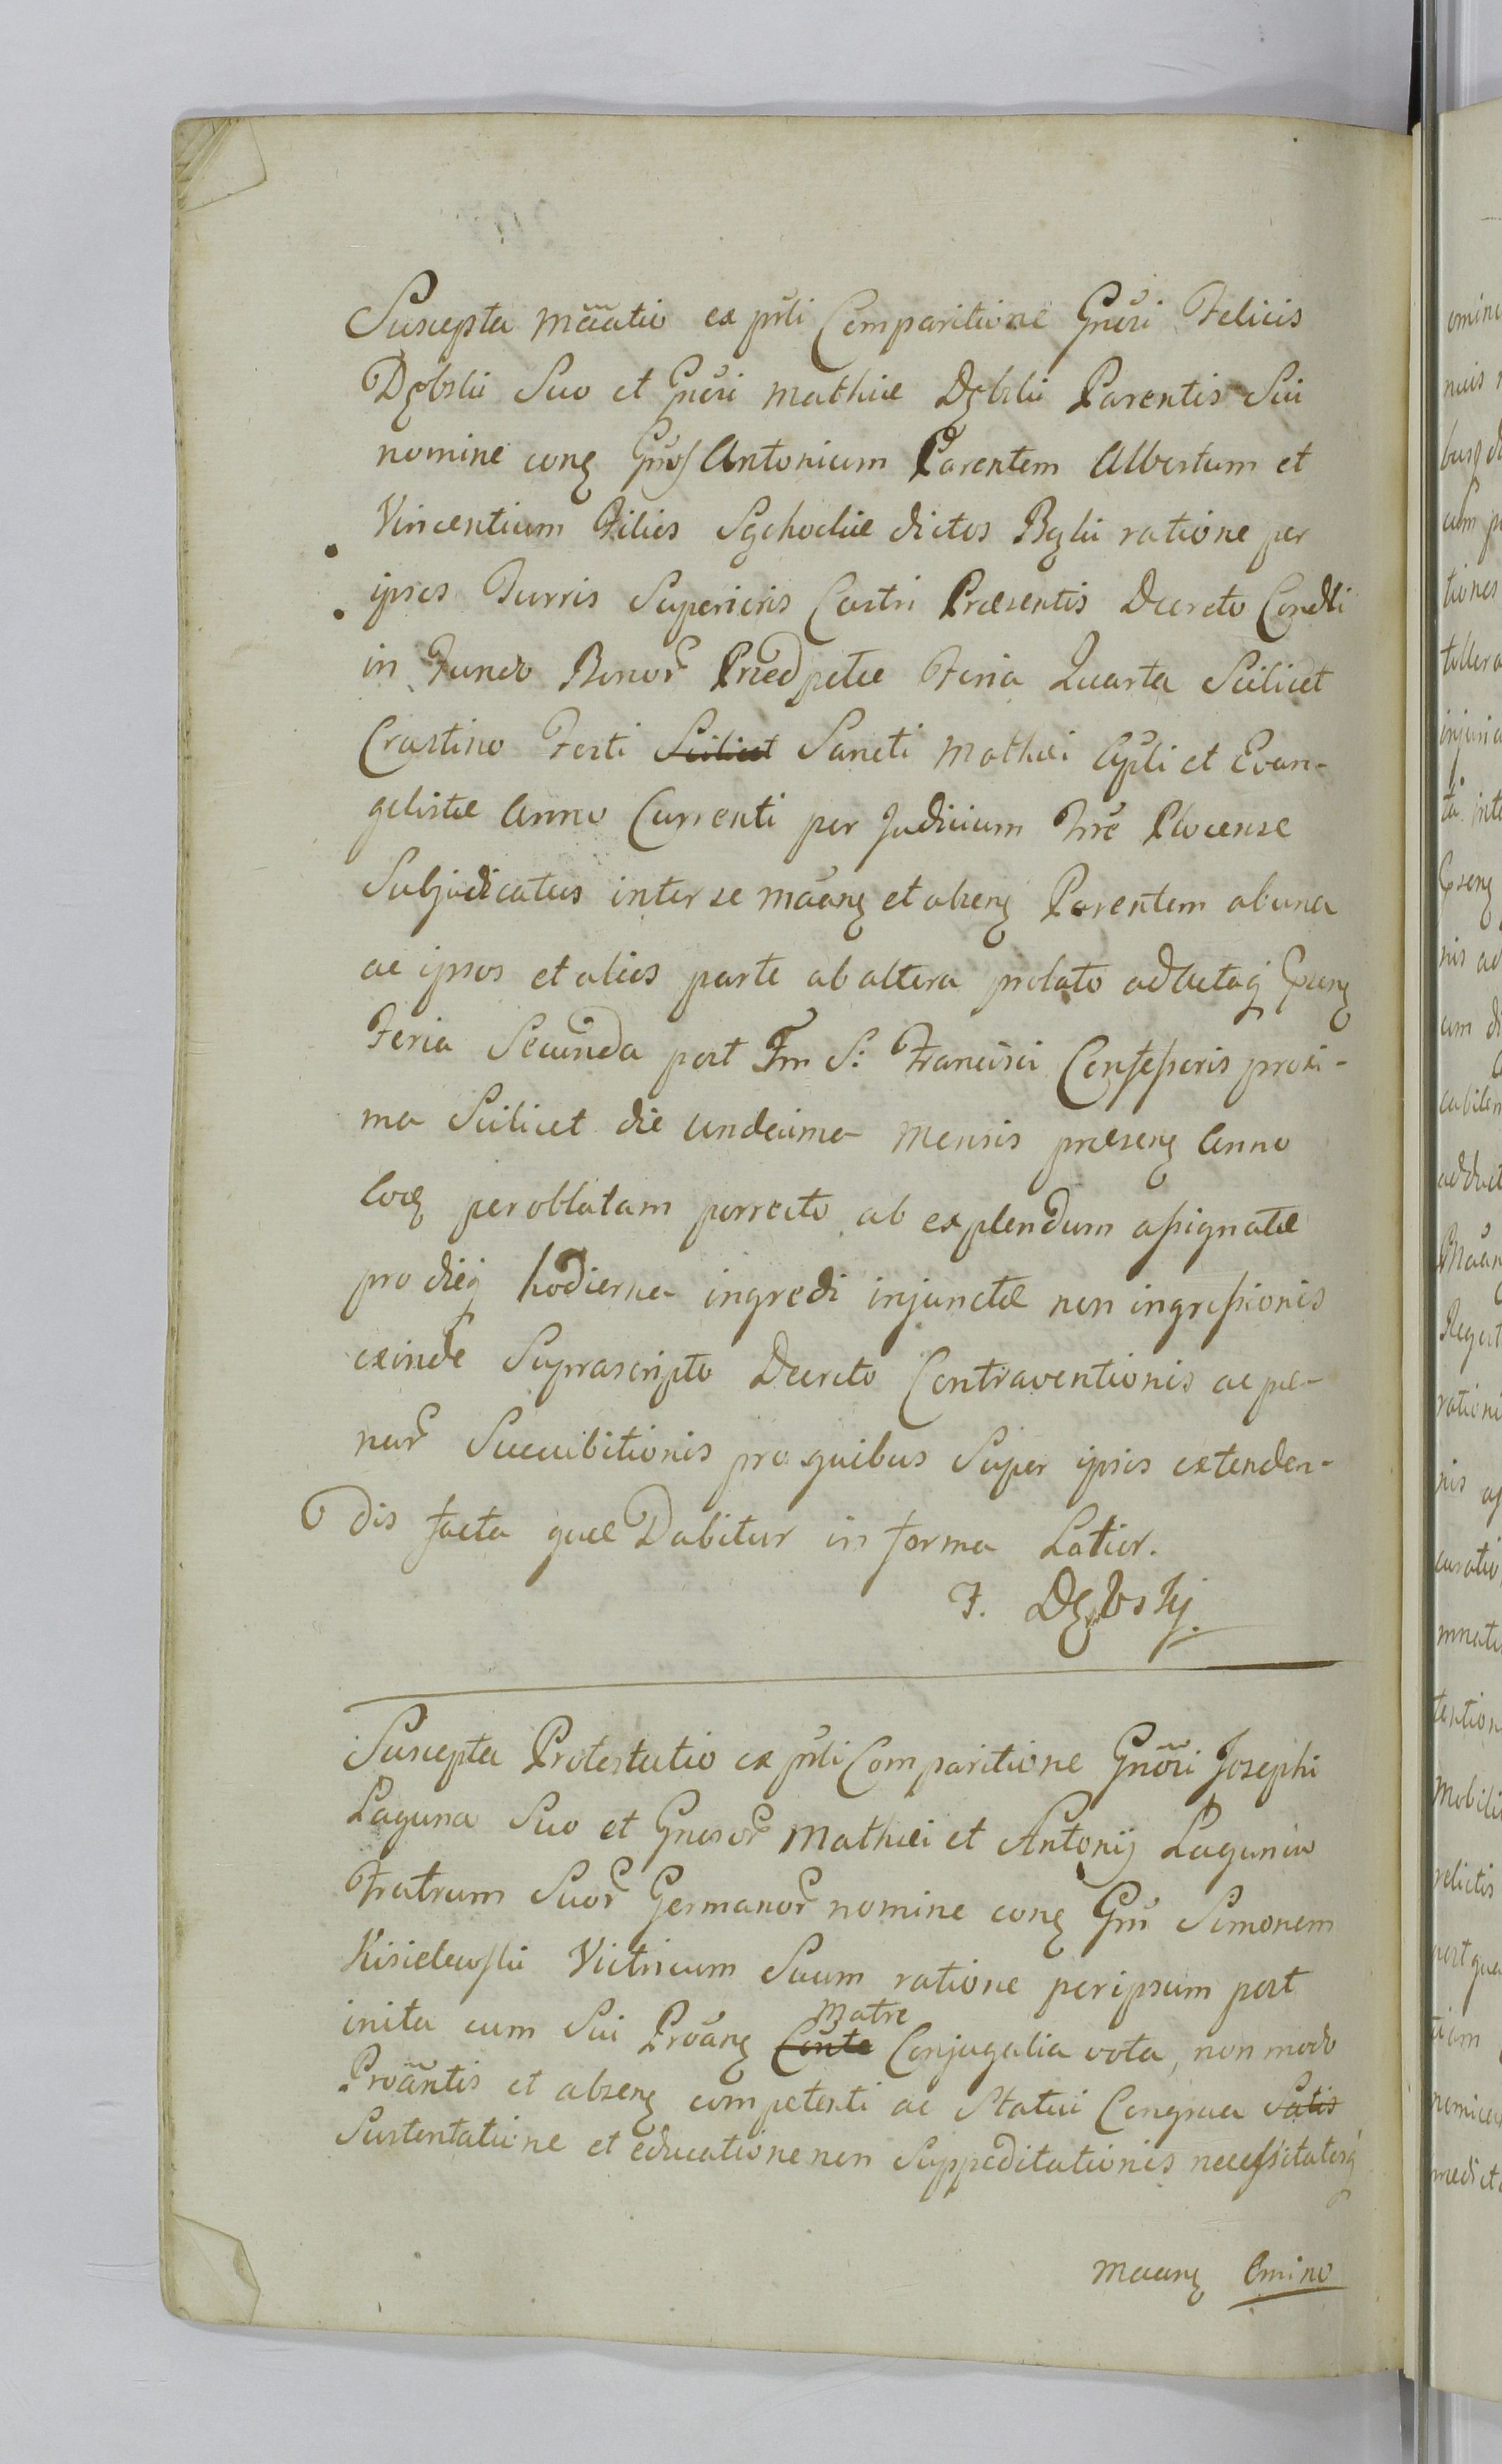 Suscepta Mãatio ex pñti Comparitione Gñosi Felicis
Dębski Suo et Gñosi Mathiæ Dębski Parentis Sui
nomine conę Gños Antonium Parentem Albertum et
Vincentium Filios Sęchockie dictos Bęski ratione per
ipsos Turris Superioris Castri Præsentis Decreto Condti
in Fundo Bonor Præd petee Feria Quarta Scilicet
Crastino Festi Scilicet Sancti Mathæi Apli et Evan-
gelistæ Anno Currenti per Judicium Trre Plocense
Subjudicatus inter se mãanę et absenę Parentem ab una
ac ipsos et alios parte ab altera prolato ad Actaq Præsenę
Feria Secunda post Fm S: Francisci Confessoris proxi-
ma Scilicet die undecima Mensis præsenę Anno
eoę per oblatam porrecto ab explendum assignatæ
pro dieq hodierna ingredi injunctæ non ingressionis
exinde Suprascripto Decreto Contraventionis ac pæ-
nar Succubitionis pro quibus Super ipsis extenden-
dis facta quæ Dabitur in forma Latior.
F. Dębskj
Suscepta Protestatio ex pñti Comparitione Gñosi Josephi
Laguna Suo et Gnosor Mathæi et Antonij Lagunow
Fratrum Suor Germanor nomine conę Gm Simonem
Kisielewski Victricum Suum ratione per ipsum post
inita cum Sui Proãnę Conte Matre Conjugalia vota, non modo
Proãntis et absenę competenti ac Statui Congrua Satis
Sustentatione et educatione non Suppeditationis necessitatesq
maanę Omino